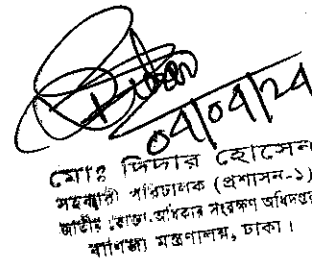 04/04/24
মোঃ দিদার হোসেন
সহকারী পরিচালক (প্রশাসন-১)
জাতীয় ভোক্তা-অধিকার সংরক্ষণ অধিদপ্তর
বাণিজ্য মন্ত্রণালয়, ঢাকা।